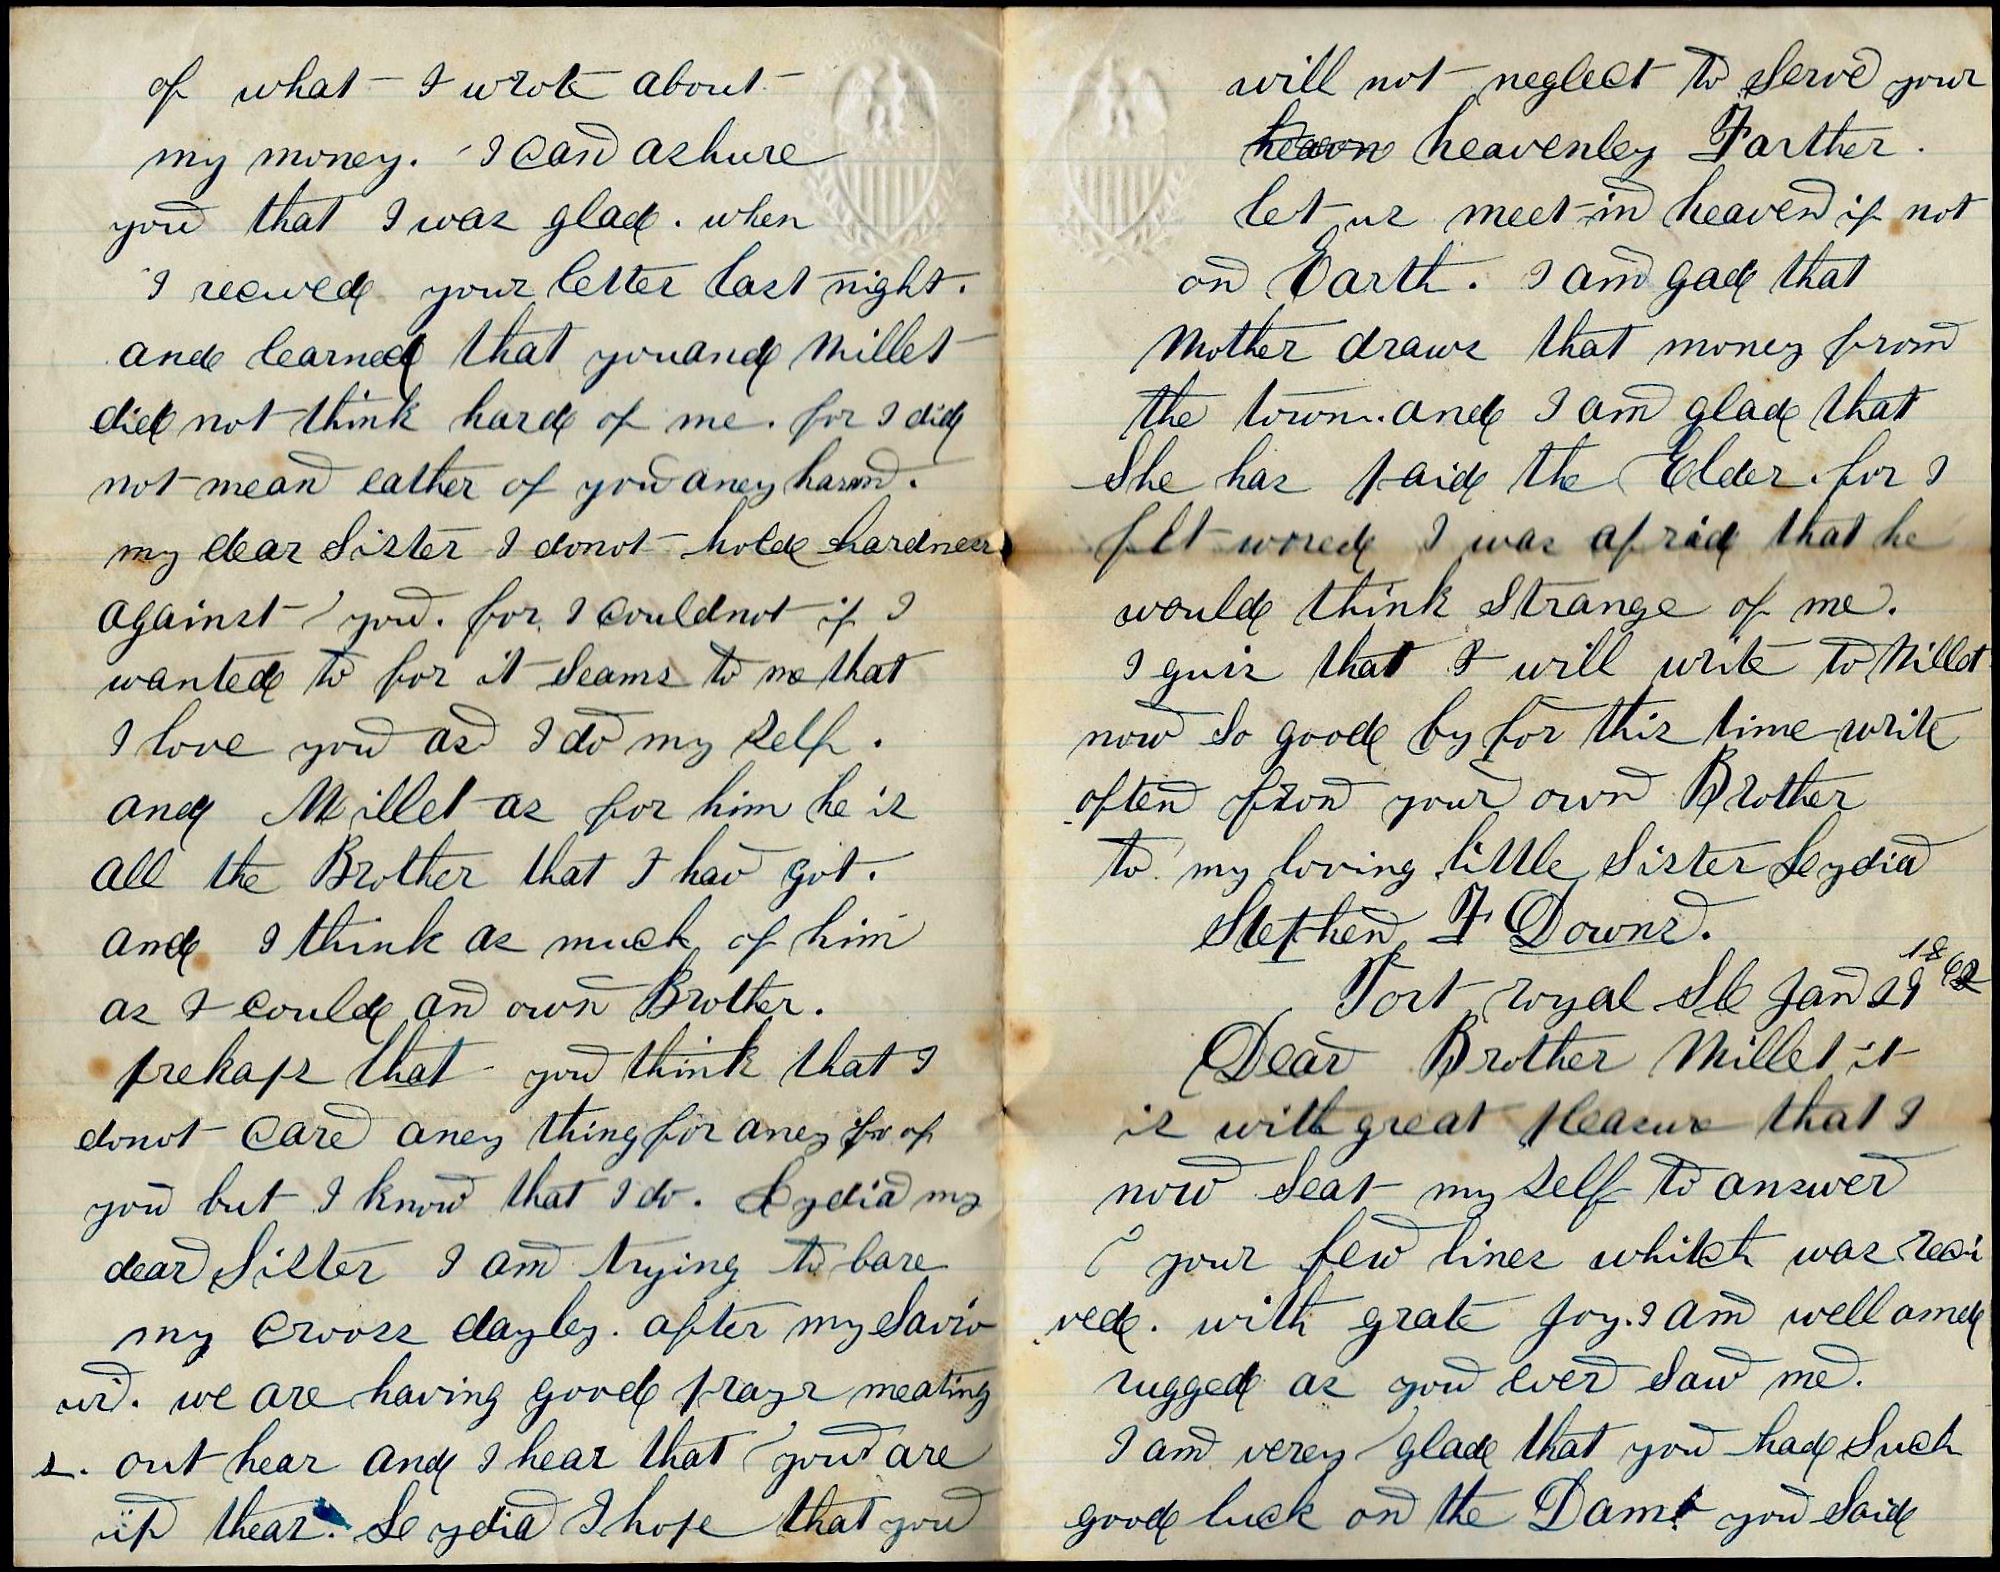 of what I wrote about
my money. I can ashure
you that I was glad. when
I recived your letter last night.
and learned that you and Millet
did not think hard of me. for I did
not mean eather of you aney harm.
my dear Sister I donot hold hardness
against you. for I couldnot if I
wanted to for it seams to me that
I love you as I do my self.
and Millet as for him he is
all the Brother that I hav got.
and I think as much of him
as I could an own Brother.
prehaps that you think that I
donot care aney thing for aney of
you but I know that I do. Lydia my
dear Sister I am trying to bare
my Crooss dayley. after my Savio
ur. we are having good prayr meating
s. out hear and I hear that you are
up thear. Leydia I hope that you
will not neglect to serve your
heaven heavenley Farther.
let us meet in heaven if not
on Earth. I am gad that
Mother draws that money from
the town. and I am glad that
She has paid the Elder. for I
felt wored I was afraid that he
would think strange of me.
I guis that I will write to Millet
now so good by for this time write
often from your own Brother
to my loving little Sister Leydia
Stephen F Downs.
Port royal SC Jan 29 1862
Dear Brother Millet it
is with great pleasure that I
now seat my self to answer
your few lines whitch was reci
ved. with grate joy. I am well amd
rugged as you ever saw me.
I am verey glad that you had such
good luck on the Dam you said